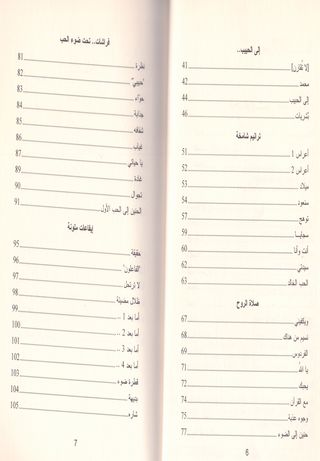 إلى الحبيب..
[لا تُقارن] 41
محمد 42
إلى الحبيب 44
يثربيات 46
ترانيم شامخة
أعراس 1 51
أعراس 2 52
ميلاد 53
سنعود 54
توهج 57
سجايـا 59
أنت وأنا 60
سيدتي 62
الحب الخالد 63
صلاة الروح
ويكفيني 67
نسيم من هناك 68
الفردوس 69
يا الله 71
بحبك 72
مع القرآن 74
وجوه عابة 75
حنين إلى السماء 77
6
فراشات.. تحت ضوء الحب
نظرة 81
"حبيبي" 82
حواء 83
جذابة 84
شفافه 85
غياب 86
يا حياتي 87
غادة 89
تجوال 90
الحنين إلى الحب الأول 91
إيقاعات ملونة
حقيقة 95
"الفاعلون" 96
لا ترتحل 97
ظلال مضيئة 98
أما بعد 1 .. 99
أما بعد 2 .. 100
أما بعد 3 .. 101
أما بعد 4 .. 102
قطرة ضوء 103
بديهة 104
شاره 105
7